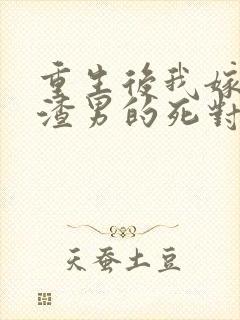 重生後我嫁
渣男的死對
天蚕土豆